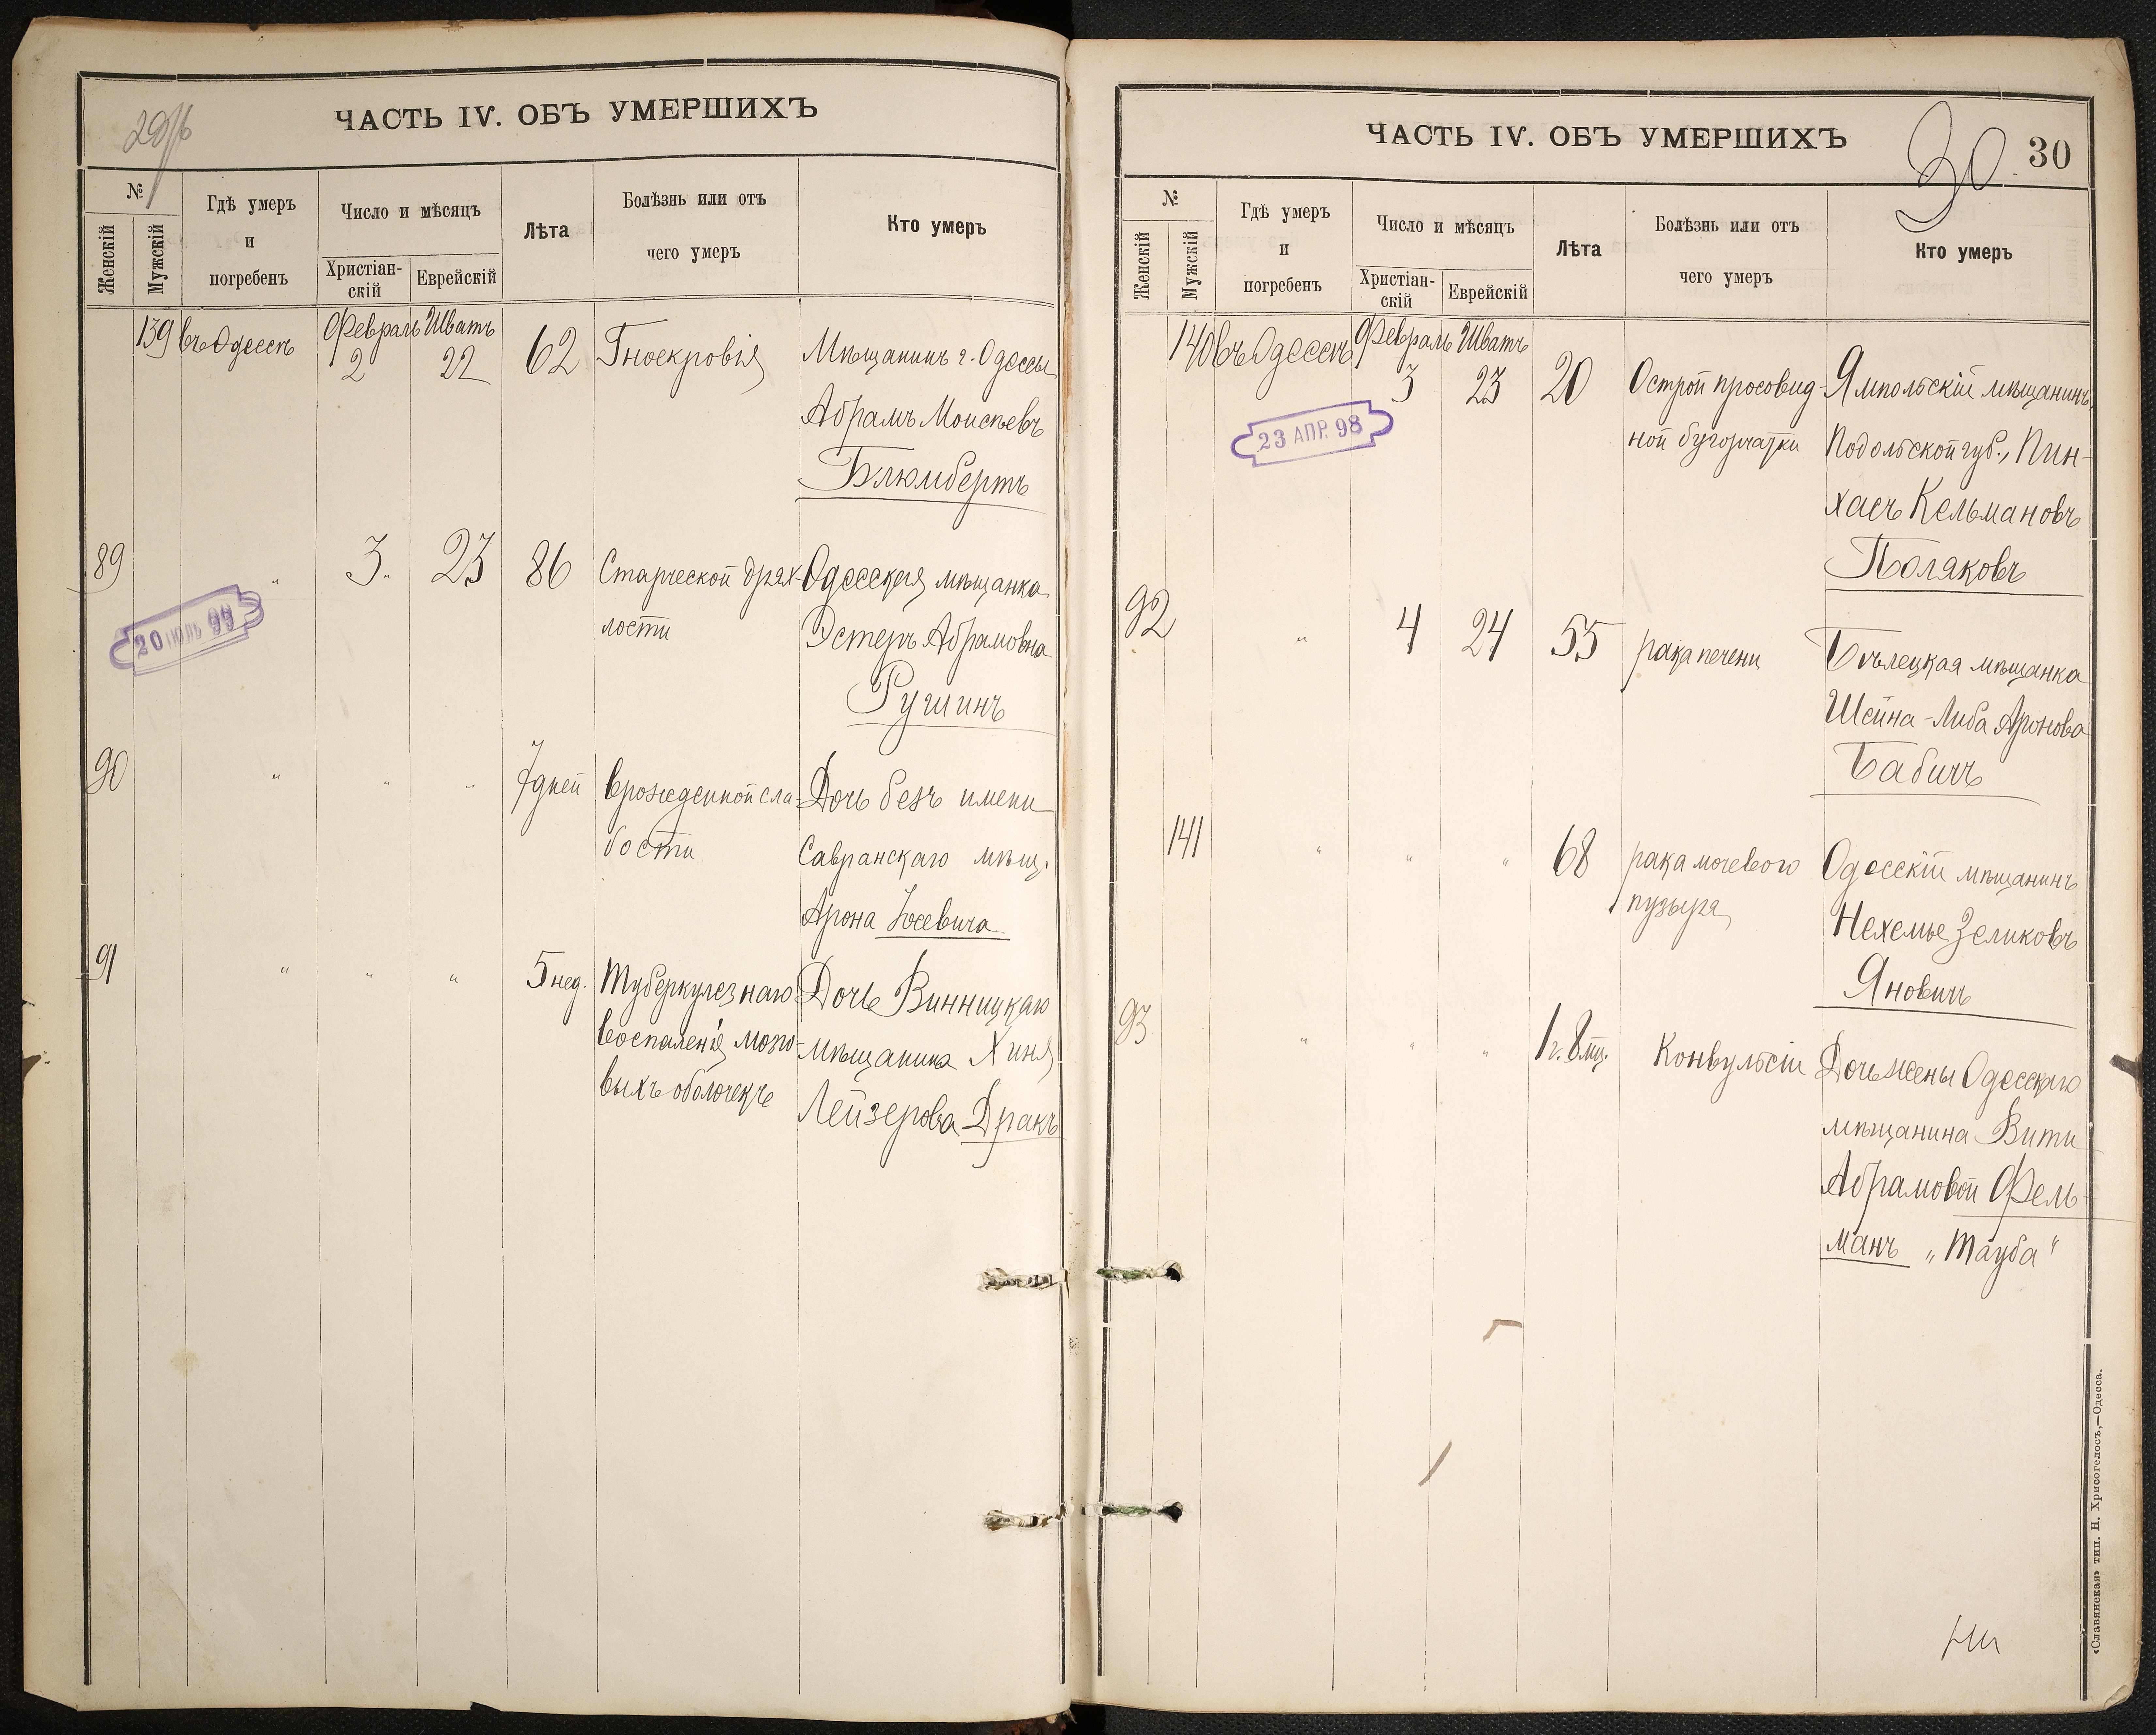 29/б
ЧАСТЬ IV. ОБЪ УМЕРШИХЪ
№
Женскій
Мужскій
Гдѣ умеръ
и
погребенъ
Число и мѣсяцъ
Христіан-
скій
Еврейскій
Лѣта
Болѣзнь или отъ
чего умеръ
Кто умеръ
139 въ Одессѣ Февраль Шватъ
2 22 62 Гноекровія Мѣщанинъ г. Одессы
Абрамъ Моисѣевъ
Блюмбертъ
89 " 3. 23 86 Старческой дрях- Одесская мѣщанка
лости Эстеръ Абрамовна
20 ІЮЛЬ 99
Рушинъ
90 " " " 7 дней врожденной сла- Дочь безъ имени
бости Савранскаго мѣщ.
Арона Іосевича
91 " " " 5 нед. Туберкулезнаго Дочь Винницкаго
воспаленія мозго- мѣщанина Хиня
выхъ оболочекъ Лейзерова Дракъ
ЧАСТЬ IV. ОБЪ УМЕРШИХЪ
30 30
№
Женскій
Мужскій
Гдѣ умеръ
и
погребенъ
Число и мѣсяцъ
Христіан-
скій
Еврейскій
Лѣта
Болѣзнь или отъ
чего умеръ
Кто умеръ
140 въ Одессѣ Февраль Шватъ
3 23 20 Острой просовид- Ямпольскій мѣщанинъ,
23 АПР. 98
ной бугорчатки Подольской губ., Пин-
хасъ Кельмановъ
Поляковъ
92 " 4 24 55 рака печени Бѣлецкая мѣщанка
Шейна-Либа Аронова
Бабичъ
141 " " " 68 рака мочевого Одесскій мѣщанинъ
пузыря Нехемье Зеликовъ
Яновичъ
93 " " " 1 г. 8 мц. Конвульсіи Дочь жены Одесскаго
мѣщанина Вити
Абрамовой Фель-
манъ „Тауба"
«Славянская» тип. Н. Хрисогелосъ,—Одесса.